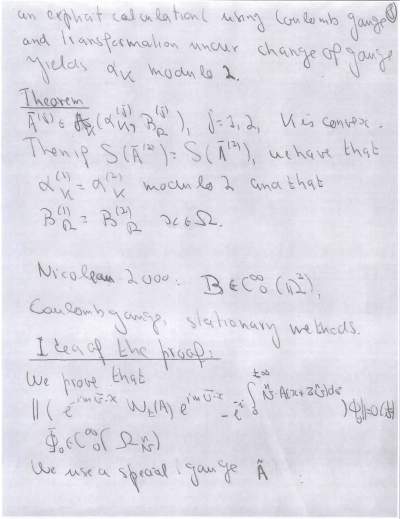 an explicit calculation( using Coulomb gauge
and transformation under change of gauge
yields α_K modulo 2.
Theorem
Ā^(j) ∈ A_K(α_K^(j), B_Ω^(j)), j=1,2, K is convex.
Then if S(Ā^(1)) = S(Ā^(2)), we have that
α_K^(1) = α_K^(2) modulo 2 and that
B_Ω^(1) = B_Ω^(2) x ∈ Ω.
Nicoleau 2000: B ∈ C_0^∞(ℝ^2),
Coulomb gauge, stationary methods.
Idea of the proof:
We prove that
||( e^{-im v̄·x} W_±(A) e^{im v̄·x} - e^{-i ∫_0^{±∞} v̂·A(x+τv̂)dτ} )Φ_0|| = O(1/v)
Φ_0 ∈ C_0^∞(Ω_v̂)
We use a special gauge Ã